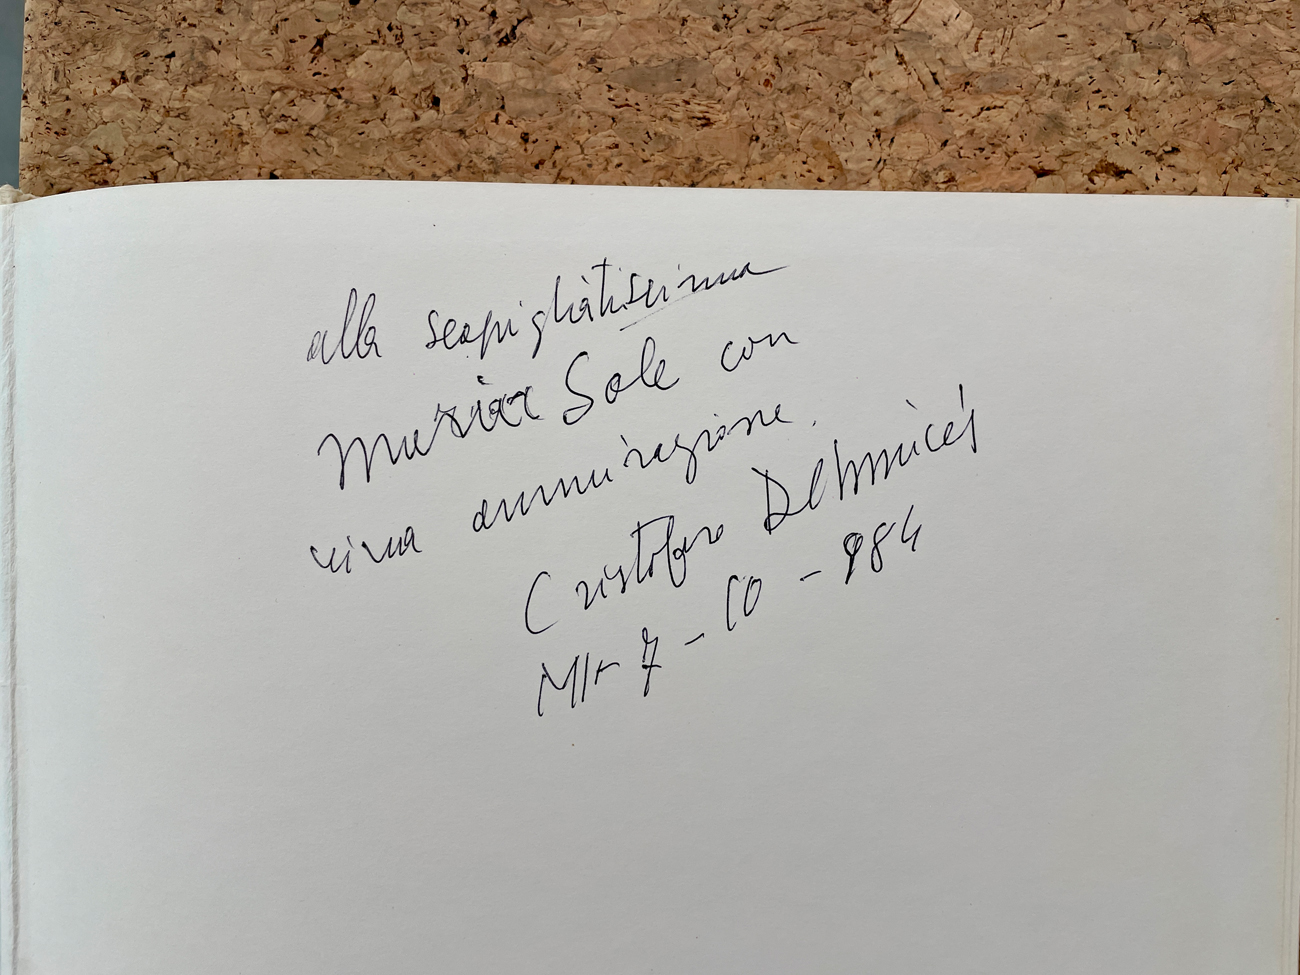 alla scapigliatissima
Maria Sole con
viva ammirazione.
Cristoforo
MI 7-10-984